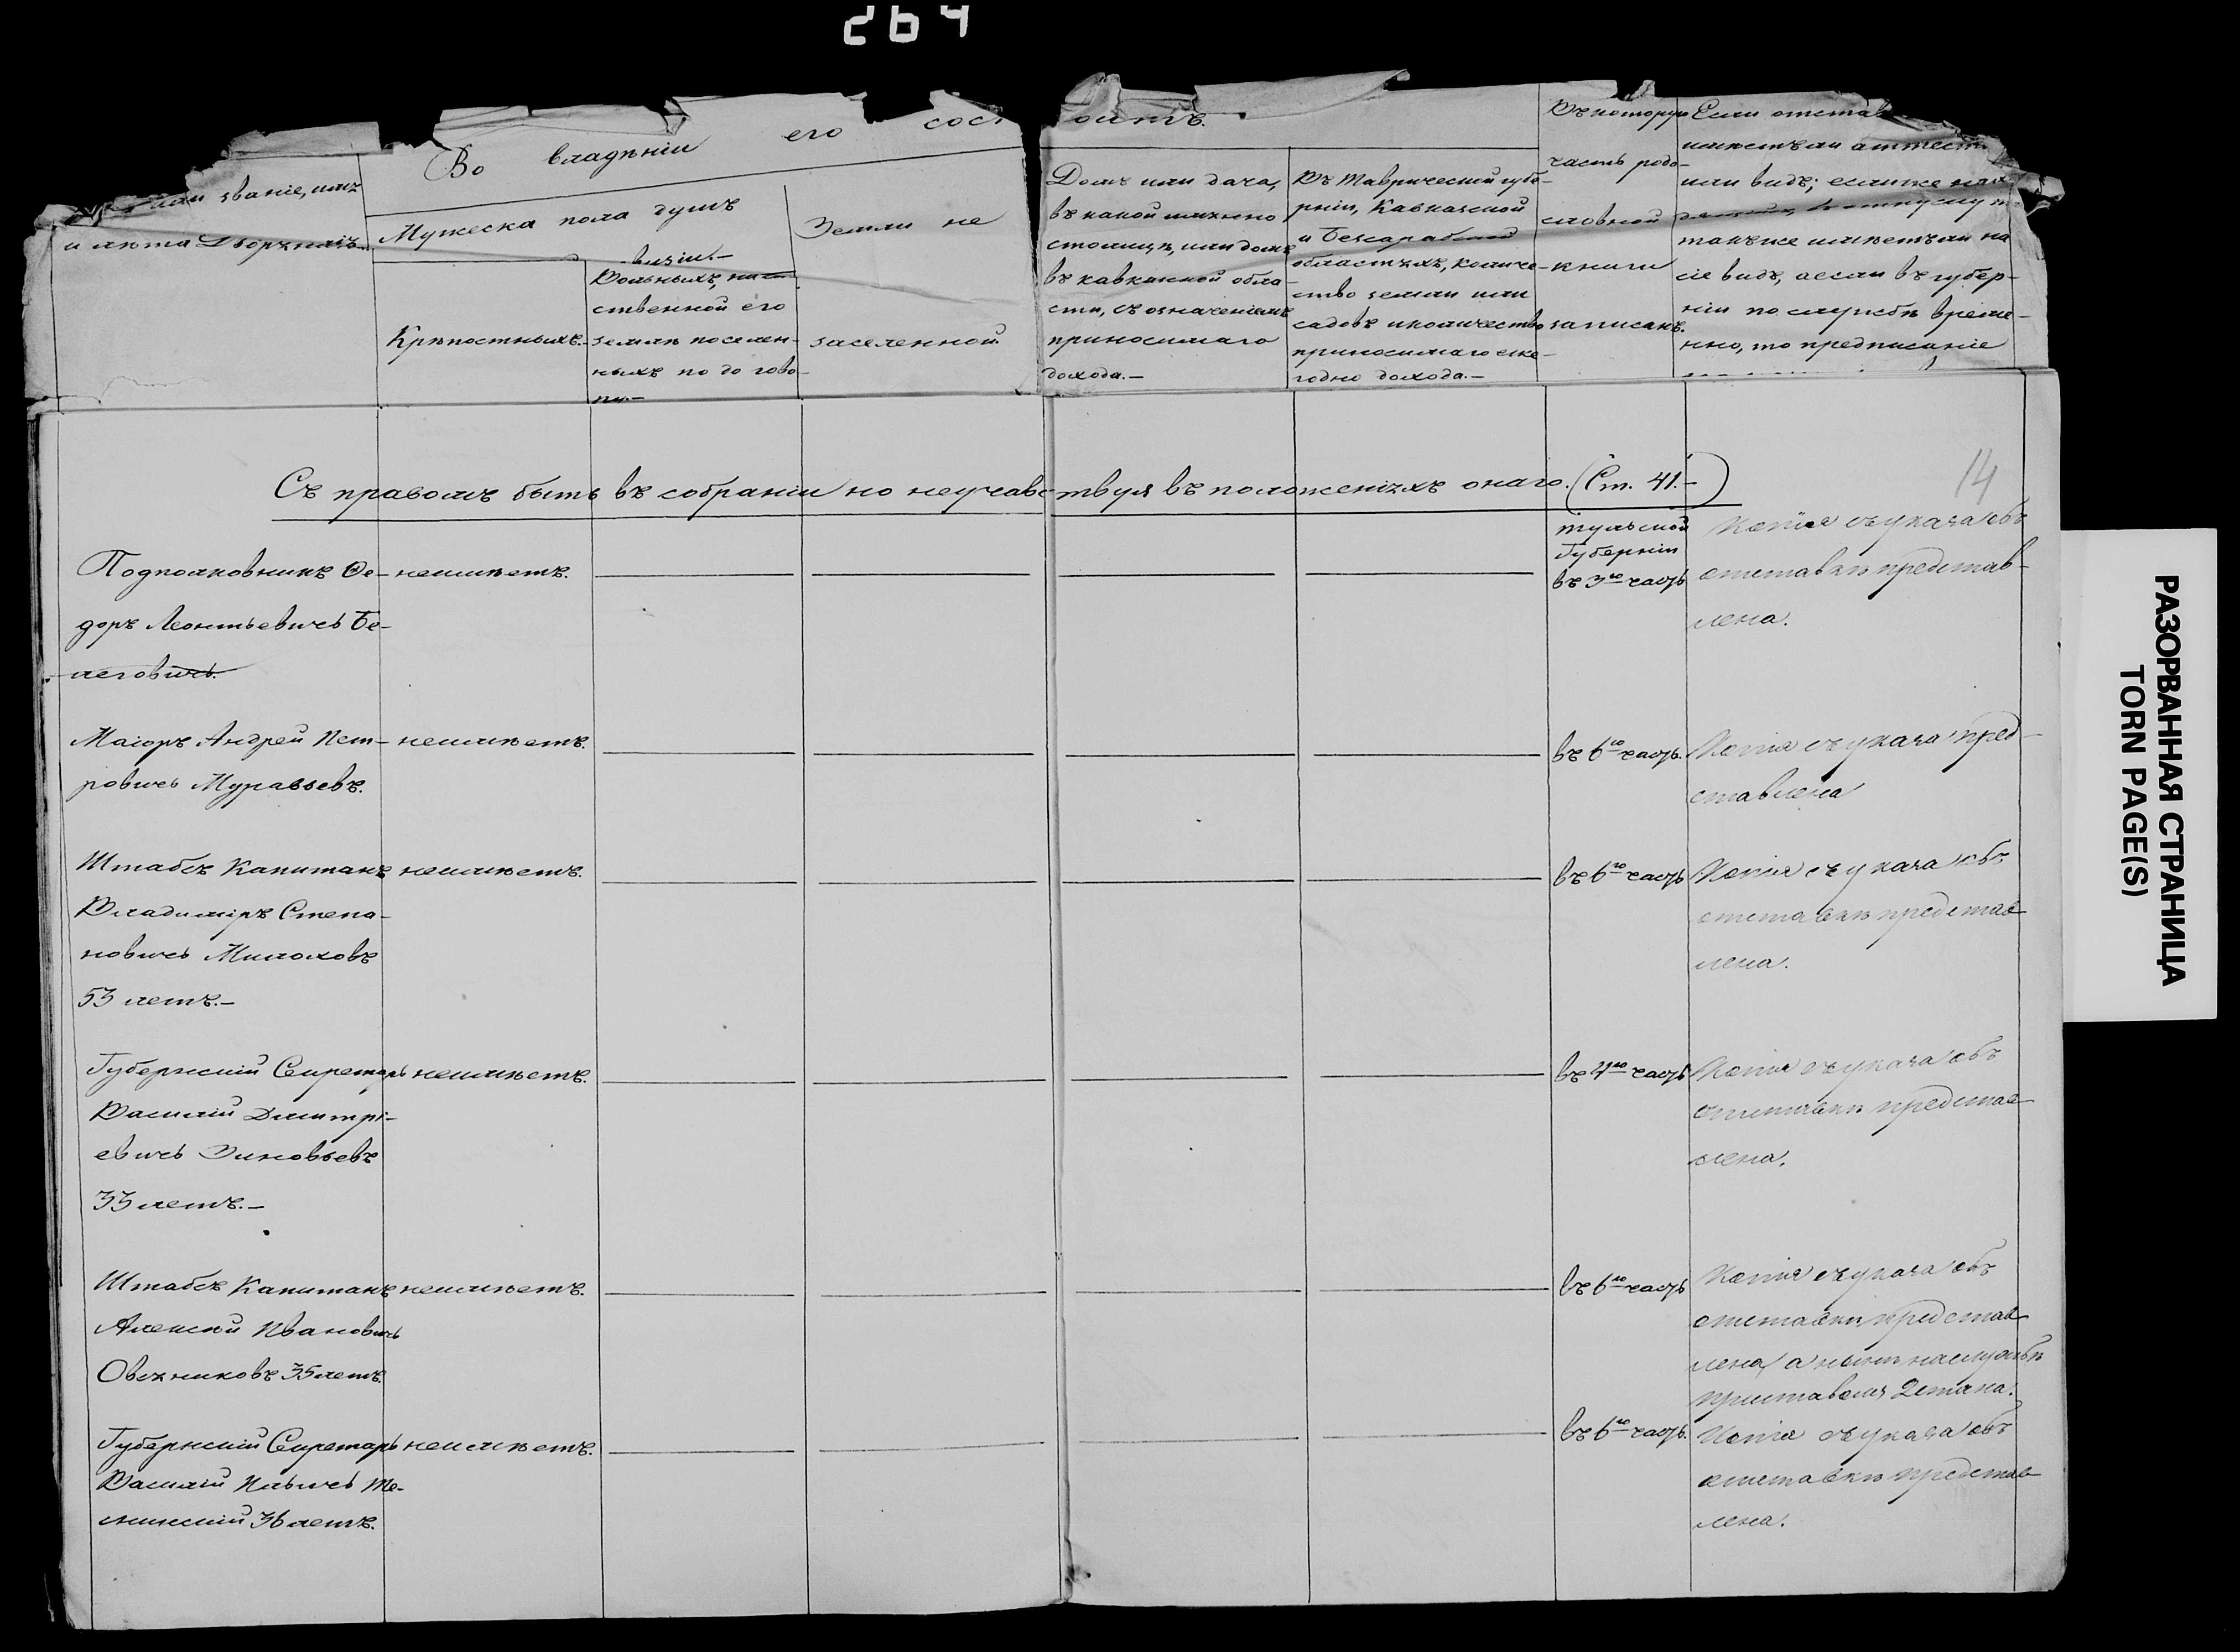 264
или званіе, имя
и лѣта Дворянъ.
Во владѣніи его сос
Мужеска пола душъ
визіи.—
Крѣпостныхъ.
Вольныхъ, на
ственной его
землѣ поселен-
ныхъ по до гово-
ру.—
Земли не
заселенной.
оитъ.
Домъ или дача,
въ какой имянно
столицѣ, или домъ
въ кавказкой обла-
сти, съ означеніемъ
приносимаго
дохода.—
Въ Таврической губе-
рніи, Кавказкой
и Бессарабской
областяхъ, количе-
ство земли или
садовъ и количество
приносимаго еже-
годно дохода.—
Въ которую
часть родо-
словной
книги
записанъ.
Если отстав
имѣетъ ли аттест
или видъ; если же нахо
также имѣетъ ли на
сіе видъ, а если въ губер-
ніи по службѣ време-
нно, то предписаніе
Съ правомъ быть въ собраніи но неучавствуя въ положеніяхъ онаго. (Ст. 41.—)
14
Подполковникъ Ѳе-
доръ Леонтьевичъ Бе-
леговичъ.
неимѣетъ.
Тульской
Губерніи
въ 3ю часть
Копія съ указа объ
отставкѣ представ-
лена.
Маіоръ Андрей Пет-
ровичъ Муравьевъ.
неимѣетъ.
въ 6ю часть.
Копія съ указа пред-
ставлена
Штабсъ Капитанъ
Владиміръ Степа-
новичъ Милоховъ
53 летъ.—
неимѣетъ.
въ 6ю часть
Копія съ указа объ
отставкѣ представ
лена.
Губернскій Секретарь
Василій Дмитрі-
евичъ Зиновьевъ
33 летъ.—
неимѣетъ.
въ 4ю часть
Копія съ указа объ
отставкѣ представ
лена.
Штабсъ Капитанъ
Алексѣй Ивановичъ
Овсяниковъ 35 летъ.
неимѣетъ.
въ 6ю часть
Копія съ указа объ
отставкѣ представ
лена, а нынѣ на службѣ
приставомъ 2 стана.
Губернскій Секретарь
Василій Ильичъ Те-
неимѣетъ.
въ 6ю часть.
Копія съ указа объ
отставкѣ представ
лена.
РАЗОРВАННАЯ СТРАНИЦА
TORN PAGE(S)